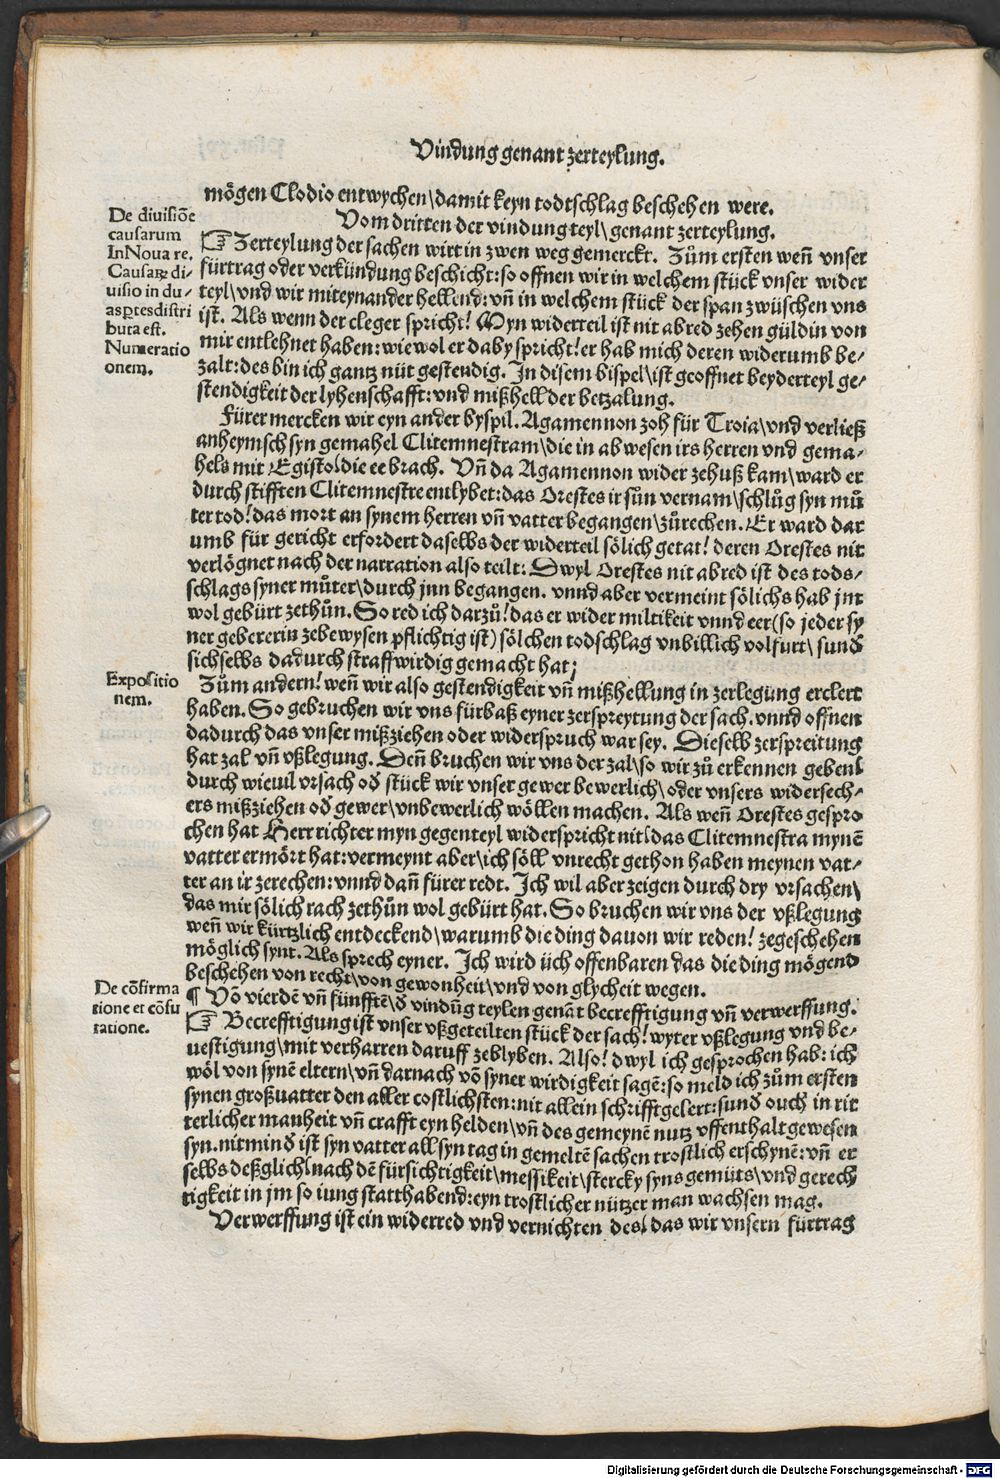 Vindung genant zerteylung.
mögen Clodio entwychen\damit keyn todtschlag beschehen were.
Vom dritten der vindung teyl\genant zerteylung.
De diuisiōe
causarum
In Noua re.
Causaꝝ di-
uisio in du-
as ꝑtes distri
buta est.
Numeratio
onem.
☞ Zerteylung der sachen wirt in zwen weg gemerckt. Zům ersten weñ vnser
fürtrag oder verkündung beschicht: so offnen wir in welchem stück vnser wider
teyl\vnd wir miteynander hellend: vñ in welchem stück der span zwüschen vns
ist. Als wenn der cleger spricht! Myn widerteil ist nit abred zehen güldin von
mir entlehnet haben: wiewol er daby spricht! er hab mich deren widerumb be-
zalt: des bin ich gantz nüt gestendig. In disem bispel\ist geoffnet beyderteyl ge-
stendigkeit der lyhenschafft: vnd mißhell der betzalung.
Fürer mercken wir eyn ander byspil. Agamennon zoh für Troia\vnd verließ
anheymsch syn gemahel Clitemnestram\die in abwesen irs herren vnd gema-
hels mit Egisto\die ee brach. Vñ da Agamennon wider zehuß kam\ward er
durch stifften Clitemnestre entlybet: das Orestes ir sůn vernam\schlůg syn mů
ter tod! das mort an synem herren vñ vatter begangen\zůrechen. Er ward dar
umb für gericht erfordert daselbs der widerteil sölich getat! deren Orestes nit
verlögnet nach der narration also teilt: Dwyl Orestes nit abred ist des tods-
schlags syner můter\durch jnn begangen. vnnd aber vermeint sölichs hab jm
wol gebürt zethůn. So red ich darzů! das er wider miltikeit vnnd eer (so jeder sy
ner gebererin zebewysen pflichtig ist) sölchen todschlag vnbillich volfurt\ sund̄
sichselbs dadurch straffwirdig gemacht hat;
Expositio
nem.
Zům andern! weñ wir also gestendigkeit vñ mißhellung in zerlegung erclert
haben. So gebruchen wir vns fürbaß eyner zerspreytung der sach. vnnd offnen
dadurch das vnser mißziehen oder widerspruch war sey. Dieselb zerspreitung
hat zal vñ vßlegung. Deñ bruchen wir vns der zal\so wir zů erkennen geben\
durch wieuil vrsach od̄ stück wir vnser gewer bewerlich\oder vnsers widersech-
ers mißziehen od̄ gewer\vnbewerlich wöllen machen. Als weñ Orestes gespro
chen hat Herr richter myn gegenteyl widerspricht nit\das Clitemnestra mynē
vatter ermört hat: vermeynt aber\ich söll vnrecht gethon haben meynen vat-
ter an ir zerechen: vnnd dañ fürer redt. Ich wil aber zeigen durch dry vrsachen\
das mir sölich rach zethůn wol gebürt hat. So bruchen wir vns der vßlegung
weñ wir kürtzlich entdeckend\warumb die ding dauon wir reden! zegeschehen
möglich synt. Als sprech eyner. Ich wird üch offenbaren das die ding mögend
beschehen von recht\von gewonheit\vnd von glycheit wegen.
De cōfirma
tione et cōfu
tatione.
¶ Vō vierdē vñ fünfftē\d̄ vindūg teylen genāt becrefftigung vñ verwerffung.
☞ Becrefftigung ist vnser vßgeteilten stück der sach! wyter vßlegung vnd be-
uestigung\mit verharren daruff zeblyben. Also! dwyl ich gesprochen hab: ich
wöl von synē eltern\vñ darnach vō syner wirdigkeit sagē: so meld ich zům ersten
synen großuatter den aller costlichsten: nit allein schrifftgelert: sund̄ ouch in rit
terlicher manheit vñ crafft eyn helden\vñ des gemeynē nutz vffenthalt gewesen
syn. nitmind̄ ist syn vatter all syn tag in gemeltē sachen trostlich erschynē: vñ er
selbs deßglich\nach dē fürsichtigkeit\messikeit\stercky syns gemüts\vnd gerech
tigkeit in jm so iung statthabend: eyn trostlicher nützer man wachsen mag.
Verwerffung ist ein widerred vnd vernichten des\ das wir vnsern fürtrag
Digitalisierung gefördert durch die Deutsche Forschungsgemeinschaft - DFG